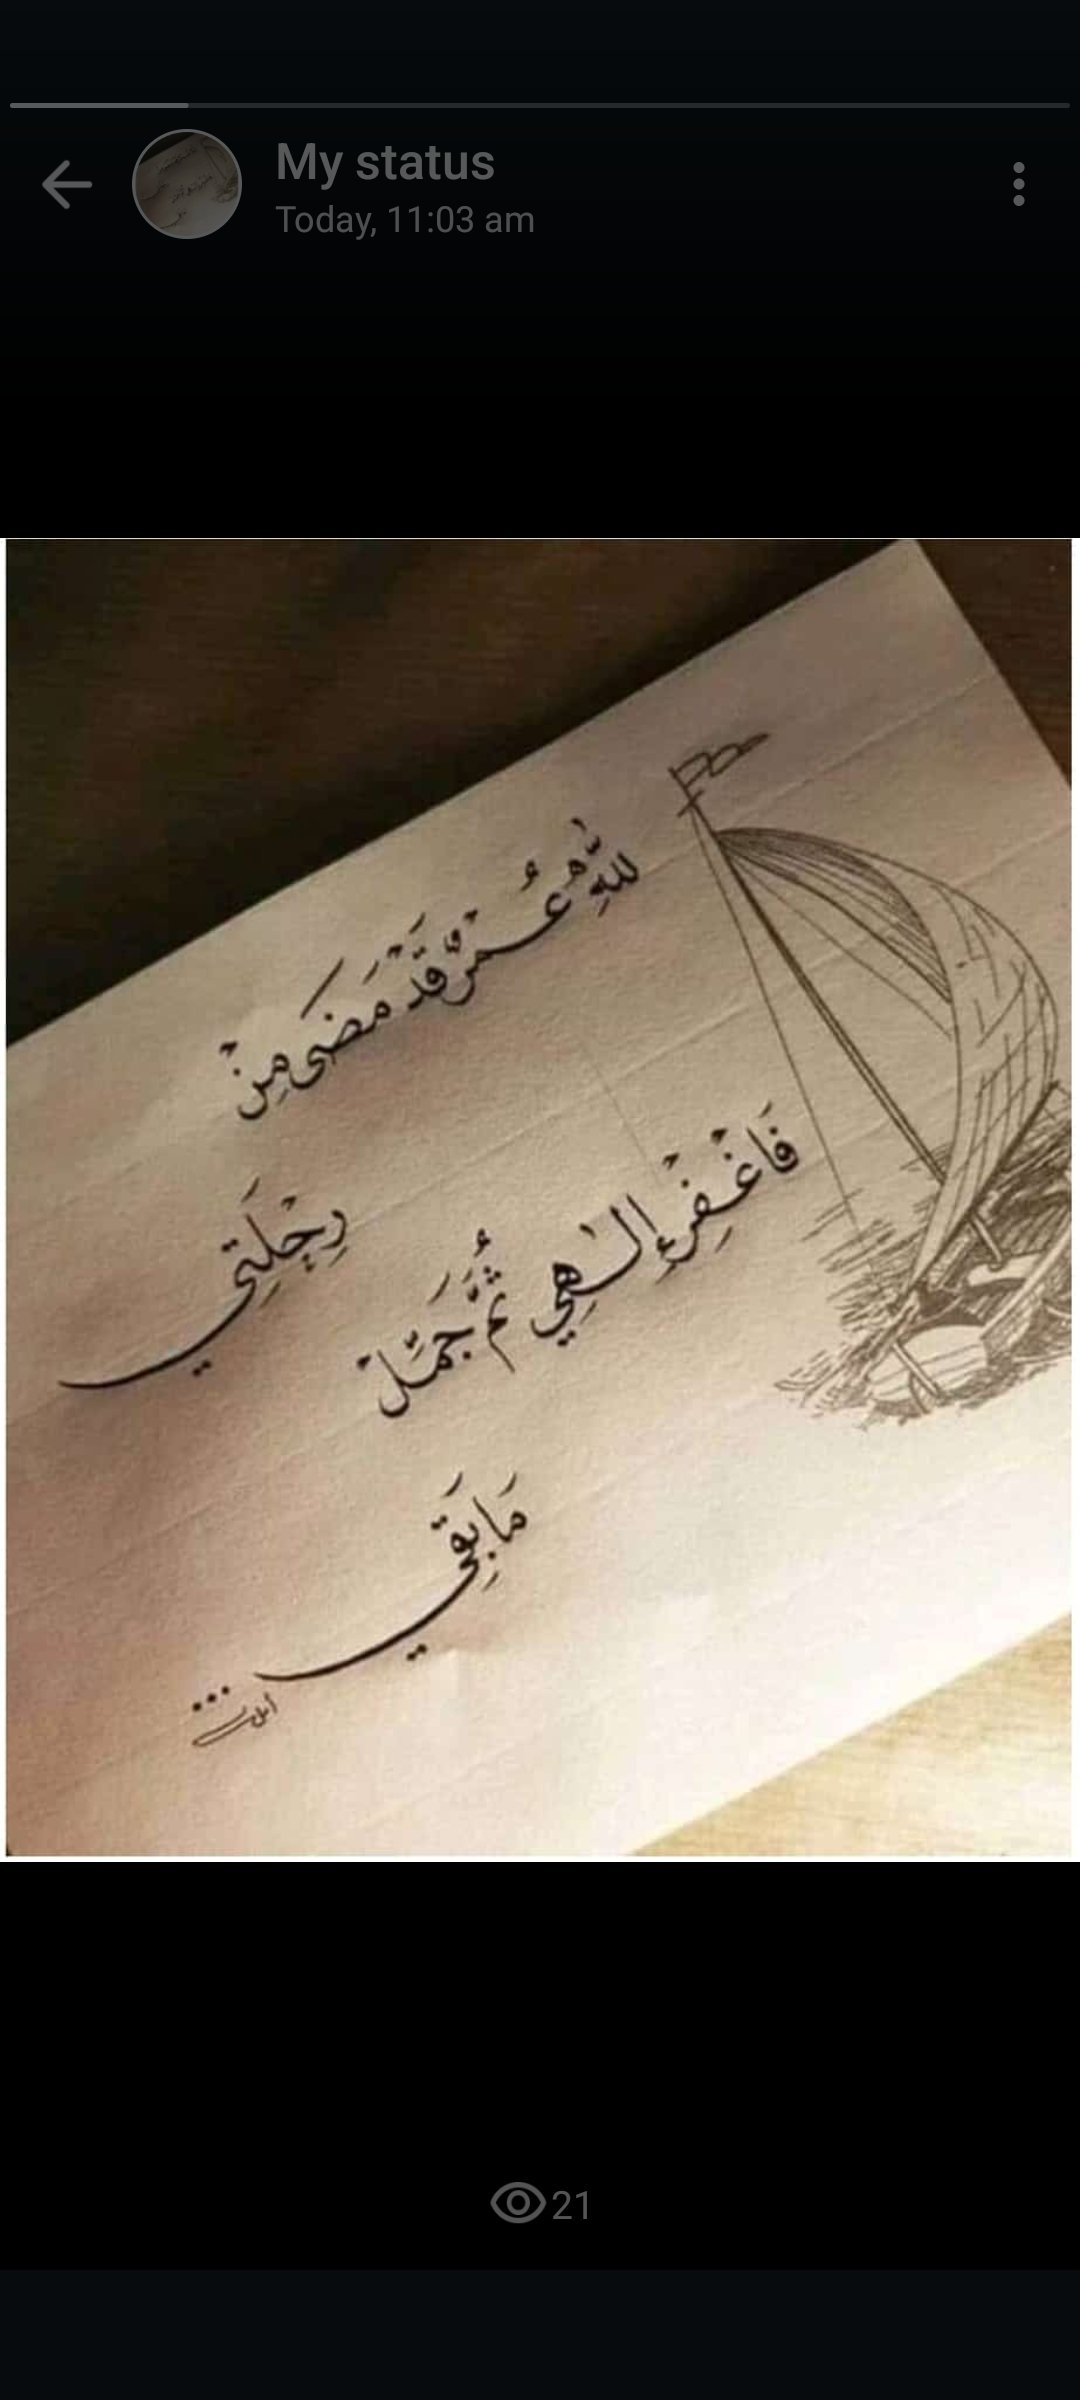 My status
Today, 11:03 am
للهِ عُمْرٌ قَدْ مَضَى مِنْ
رِحْلَتِي
فَاغْفِرْ إِلٰهِي ثُمَّ جَمِّلْ
مَا بَقِي
...
21